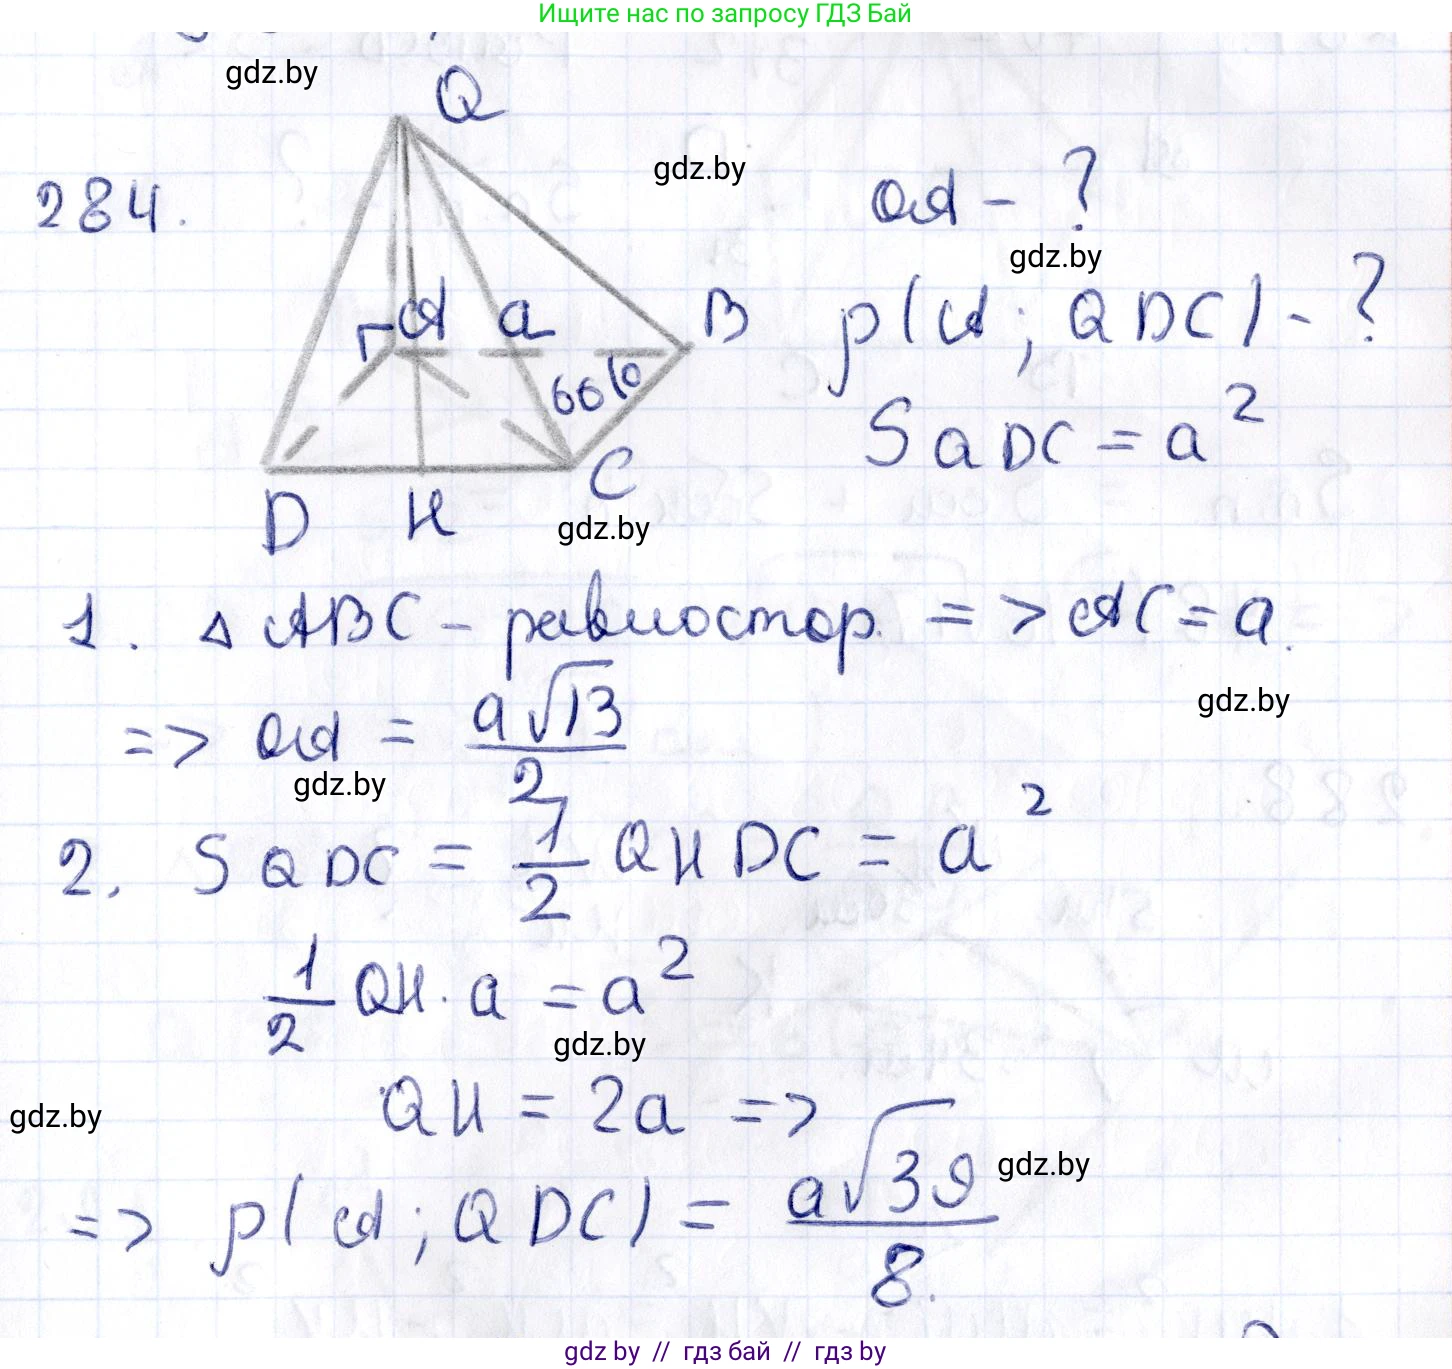 Ищите нас по запросу ГДЗ Бай
gdz.by
Q
284.
gdz.by
QA - ?
gdz.by
A a B
60°
ρ(A; QDC) - ?
S QDC = a²
D H C
gdz.by
1. △ ABC - равностор. => AC = a.
gdz.by
=> QA = a√13/2
gdz.by
2. S QDC = 1/2 QH DC = a²
1/2 QH · a = a²
gdz.by
QH = 2a =>
gdz.by
gdz.by
=> ρ(A; QDC) = a√39/8.
gdz.by // гдз бай // гдз by